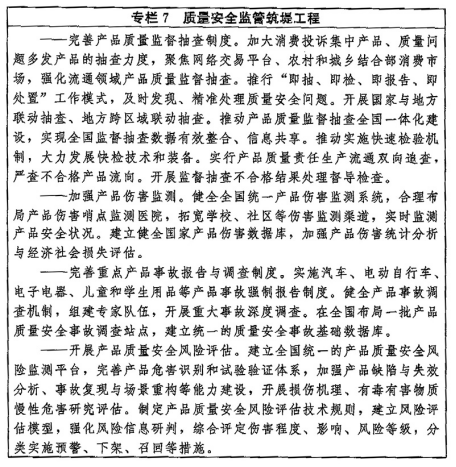 专栏 7　质量安全监管筑堤工程
——完善产品质量监督抽查制度。加大消费投诉集中产品、质量问
题多发产品的抽查力度，聚焦网络交易平台、农村和城乡结合部消费市
场，强化流通领域产品质量监督抽查。推行“即抽、即检、即报告、即
处置”工作模式，及时发现、精准处理质量安全问题。开展国家与地方
联动抽查、地方跨区域联动抽查。推动产品质量监督抽查全国一体化建
设，实现全国监督抽查数据有效整合、信息共享。推动实施快速检验机
制，大力发展快检技术和装备。实行产品质量责任生产流通双向追查，
严查不合格产品流向。开展监督抽查不合格结果处理督导检查。
——加强产品伤害监测。健全全国统一产品伤害监测系统，合理布
局产品伤害哨点监测医院，拓宽学校、社区等伤害监测渠道，实时监测
产品安全状况。建立健全国家产品伤害数据库，加强产品伤害统计分析
与经济社会损失评估。
——完善重点产品事故报告与调查制度。实施汽车、电动自行车、
电子电器、儿童和学生用品等产品事故强制报告制度。健全产品事故调
查机制，组建专家队伍，开展重大事故深度调查。在全国布局一批产品
质量安全事故调查站点，建立统一的质量安全事故基础数据库。
——开展产品质量安全风险评估。建立全国统一的产品质量安全风
险监测平台，完善产品危害识别和试验验证体系，加强产品缺陷与失效
分析、事故复现与场景重构等能力建设，开展损伤机理、有毒有害物质
慢性危害研究评估。制定产品质量安全风险评估技术规则，建立风险评
估模型，强化风险信息研判，综合评定伤害程度、影响、风险等级，分
类实施预警、下架、召回等措施。